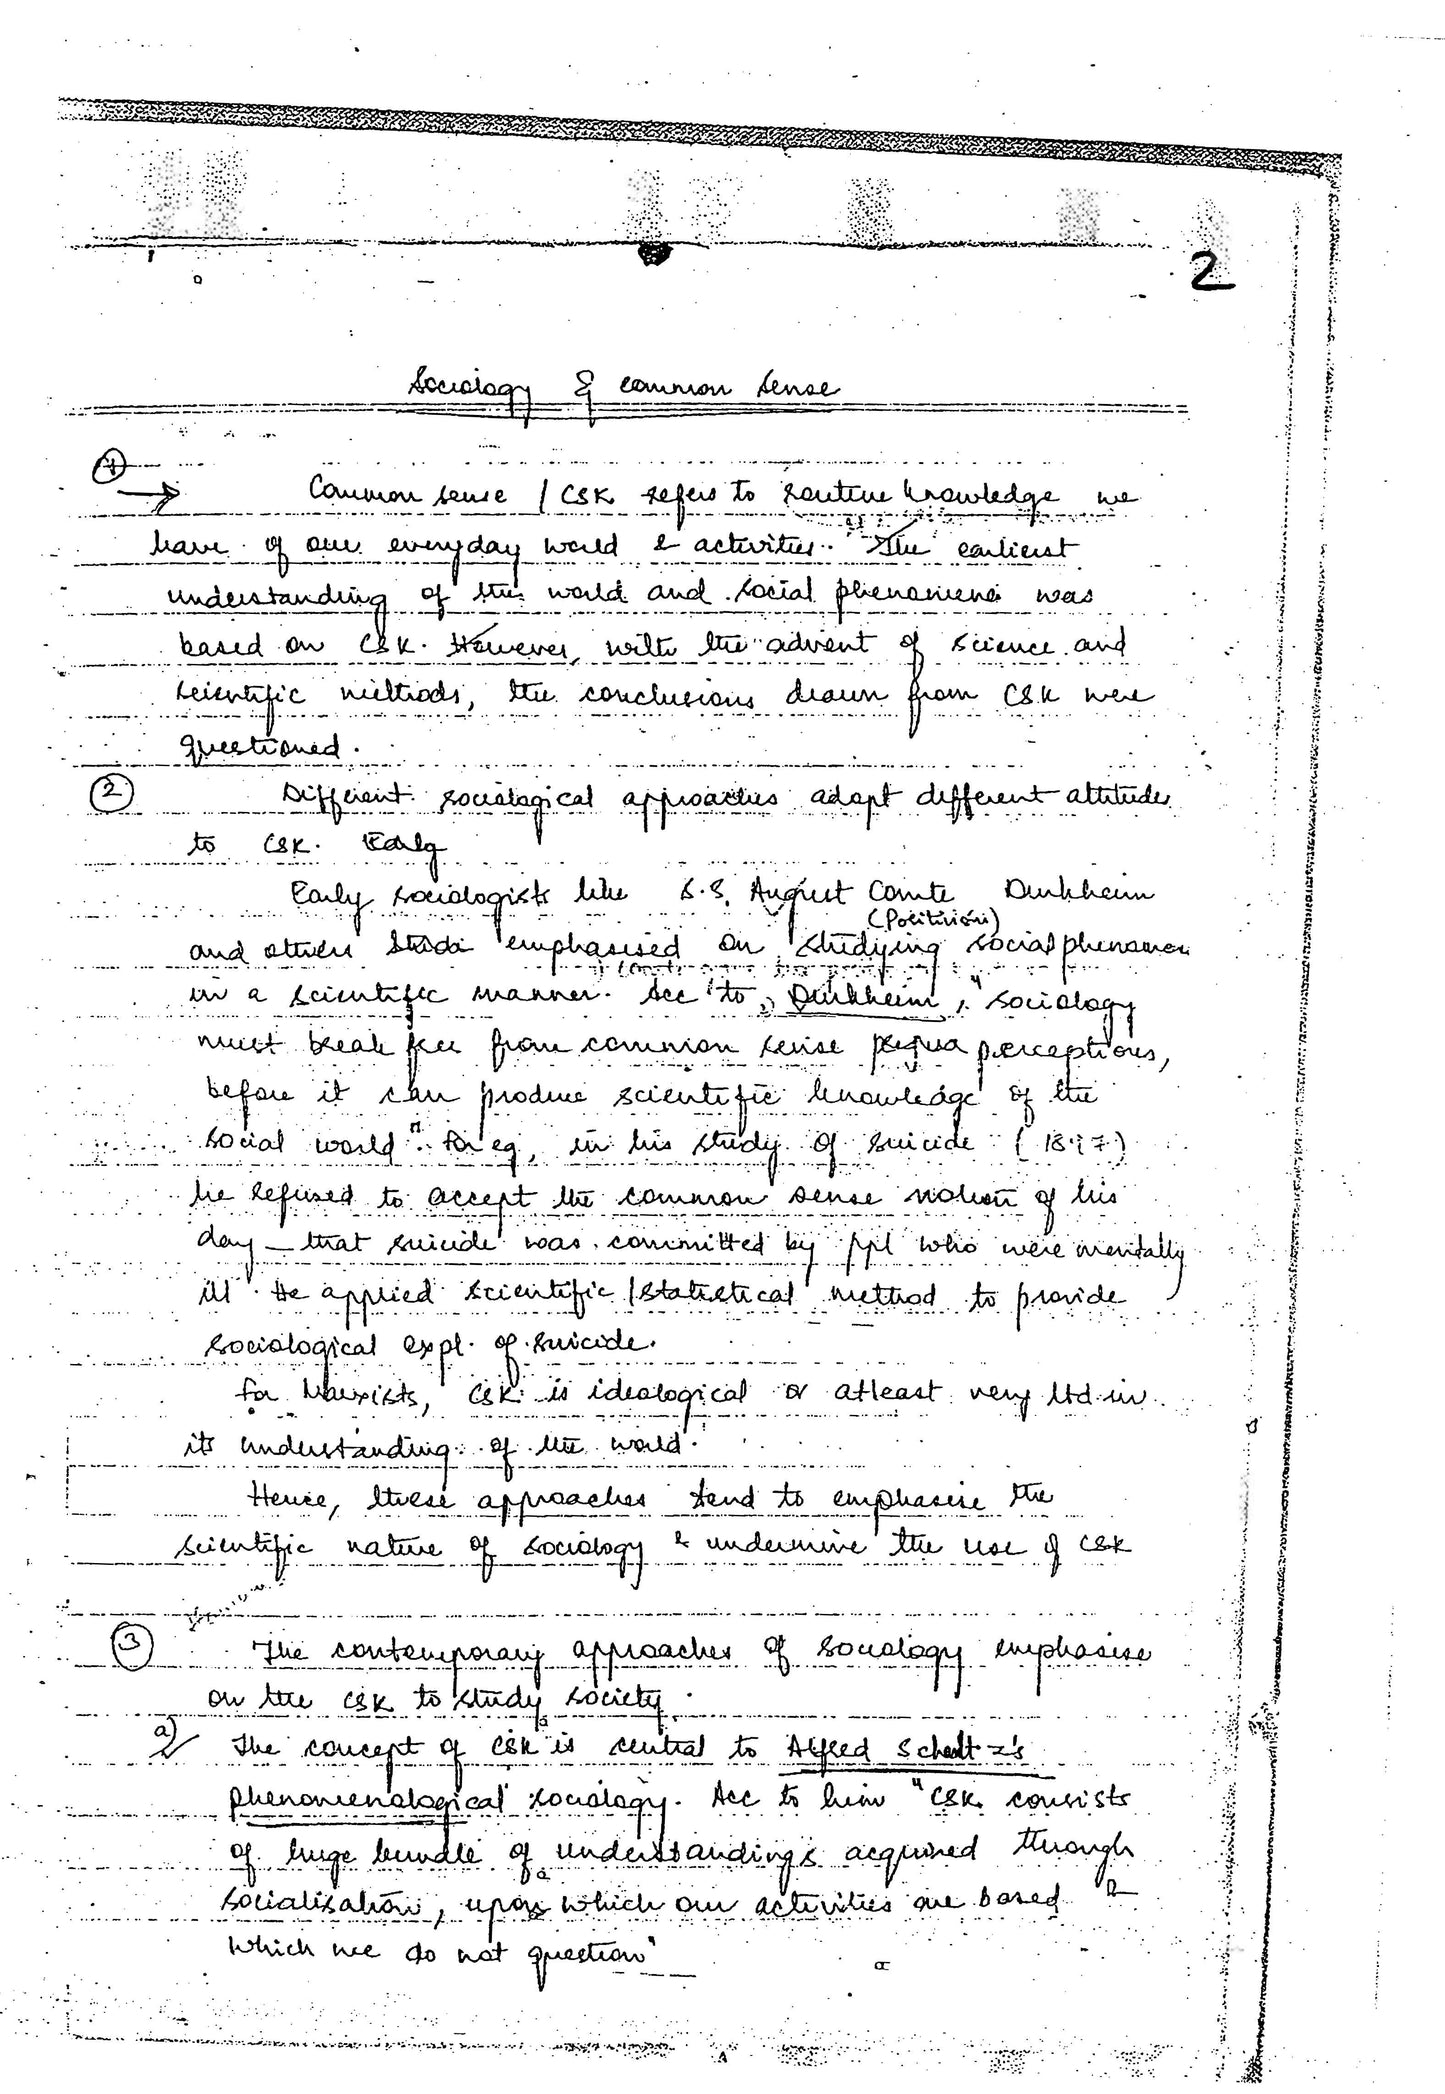 2
Sociology & common sense
1
→ Common sense / CSK refers to routine knowledge we
have of our everyday world & activities. The earliest
understanding of the world and social phenomena was
based on CSK. However, with the advent of science and
scientific methods, the conclusions drawn from CSK were
questioned.
2 Different sociological approaches adopt different attitudes
to CSK. Early
Early sociologists like August Comte Durkheim
(Positivism)
and others emphasised on studying social phenomen
in a scientific manner. Acc to, Durkheim, "sociology
must break free from common sense perceptions,
before it can produce scientific knowledge of the
social world". For eg, in his study of suicide
he refused to accept the common sense notion of his
day - that suicide was committed by ppl who were mentally
ill. He applied scientific / statistical method to provide
sociological expl. of suicide.
For Marxists, CSK is ideological or atleast very ltd in
its understanding of the world.
Hence, these approaches tend to emphasise the
scientific nature of sociology & undermine the use of CSK
3 The contemporary approaches of sociology emphasise
on the CSK to study society.
a) The concept of CSK is central to Alfred Schultz's
phenomenological sociology. Acc to him "CSK consists
of huge bundle of understandings acquired through
socialisation, upon which our activities are based &
which we do not question"